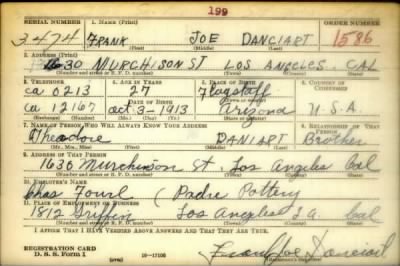 199
SERIAL NUMBER 1. NAME ORDER NUMBER
3474 FRANK JOE DANCIART 1586
(First) (Middle) (Last)
2. ADDRESS (Print)
1630 MURCHISON ST LOS ANGELES, CAL
(Number and street or R. F. D. number) (Town) (County) (State)
3. TELEPHONE 4. AGE IN YEARS 5. PLACE OF BIRTH 6. COUNTRY OF CITIZENSHIP
ca 0213 27 Flagstaff
DATE OF BIRTH
ca 12167 oct-3-1913 Arizona U.S.A.
(Exchange) (Number) (Mo.) (Day) (Yr.) (State or country)
7. NAME OF PERSON WHO WILL ALWAYS KNOW YOUR ADDRESS 8. RELATIONSHIP OF THAT PERSON
Theadore DANIART Brother
(Mr., Mrs., Miss) (First) (Middle) (Last)
9. ADDRESS OF THAT PERSON
1636 Murchison St. Los Angeles Cal
(Number and street or R. F. D. number) (Town) (County) (State)
10. EMPLOYER'S NAME
(Padre Pottery
11. PLACE OF EMPLOYMENT OR BUSINESS
1812 Griffin Los Angeles L.A. Cal
(Number and street or R. F. D. number) (Town) (County) (State)
I AFFIRM THAT I HAVE VERIFIED ABOVE ANSWERS AND THAT THEY ARE TRUE.
REGISTRATION CARD
D. S. S. Form 1 (over) 16-17105 Frank Joe Danciart
(Registrant's signature)